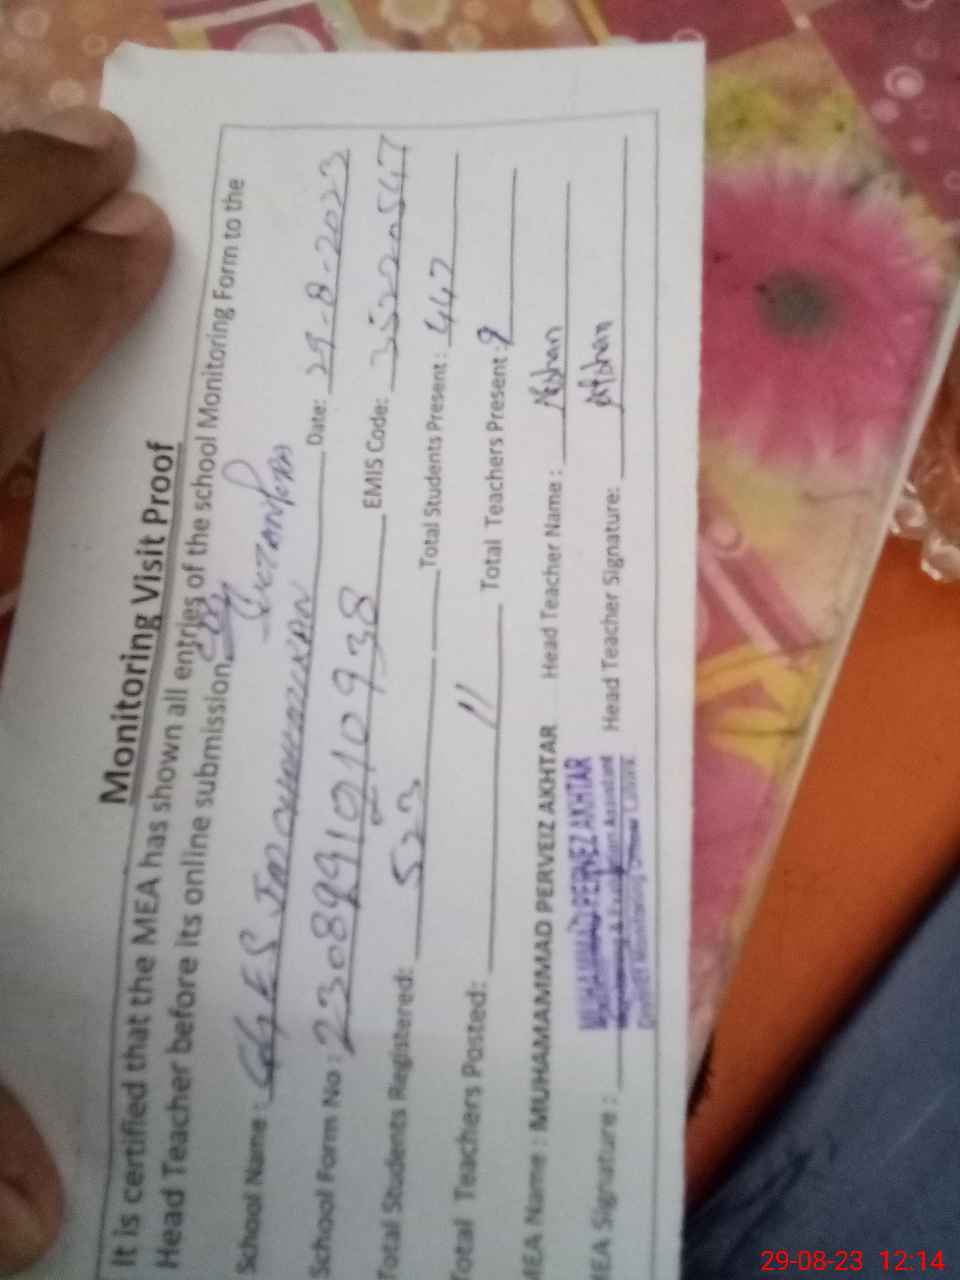 Monitoring Visit Proof
It is certified that the MEA has shown all entries of the school Monitoring Form to the
Head Teacher before its online submission.
School Name : GGES Date: 29-8-2023
School Form No : EMIS Code: 35220547
Total Students Registered: 523 Total Students Present : 447
Total Teachers Posted: 11 Total Teachers Present : 9
MEA Name : MUHAMAMMAD PERVEIZ AKHTAR Head Teacher Name :
MEA Signature : Head Teacher Signature: Afshan
MUHAMMAD PERVEZ AKHTAR
District Monitoring Officer
29-08-23 12:14